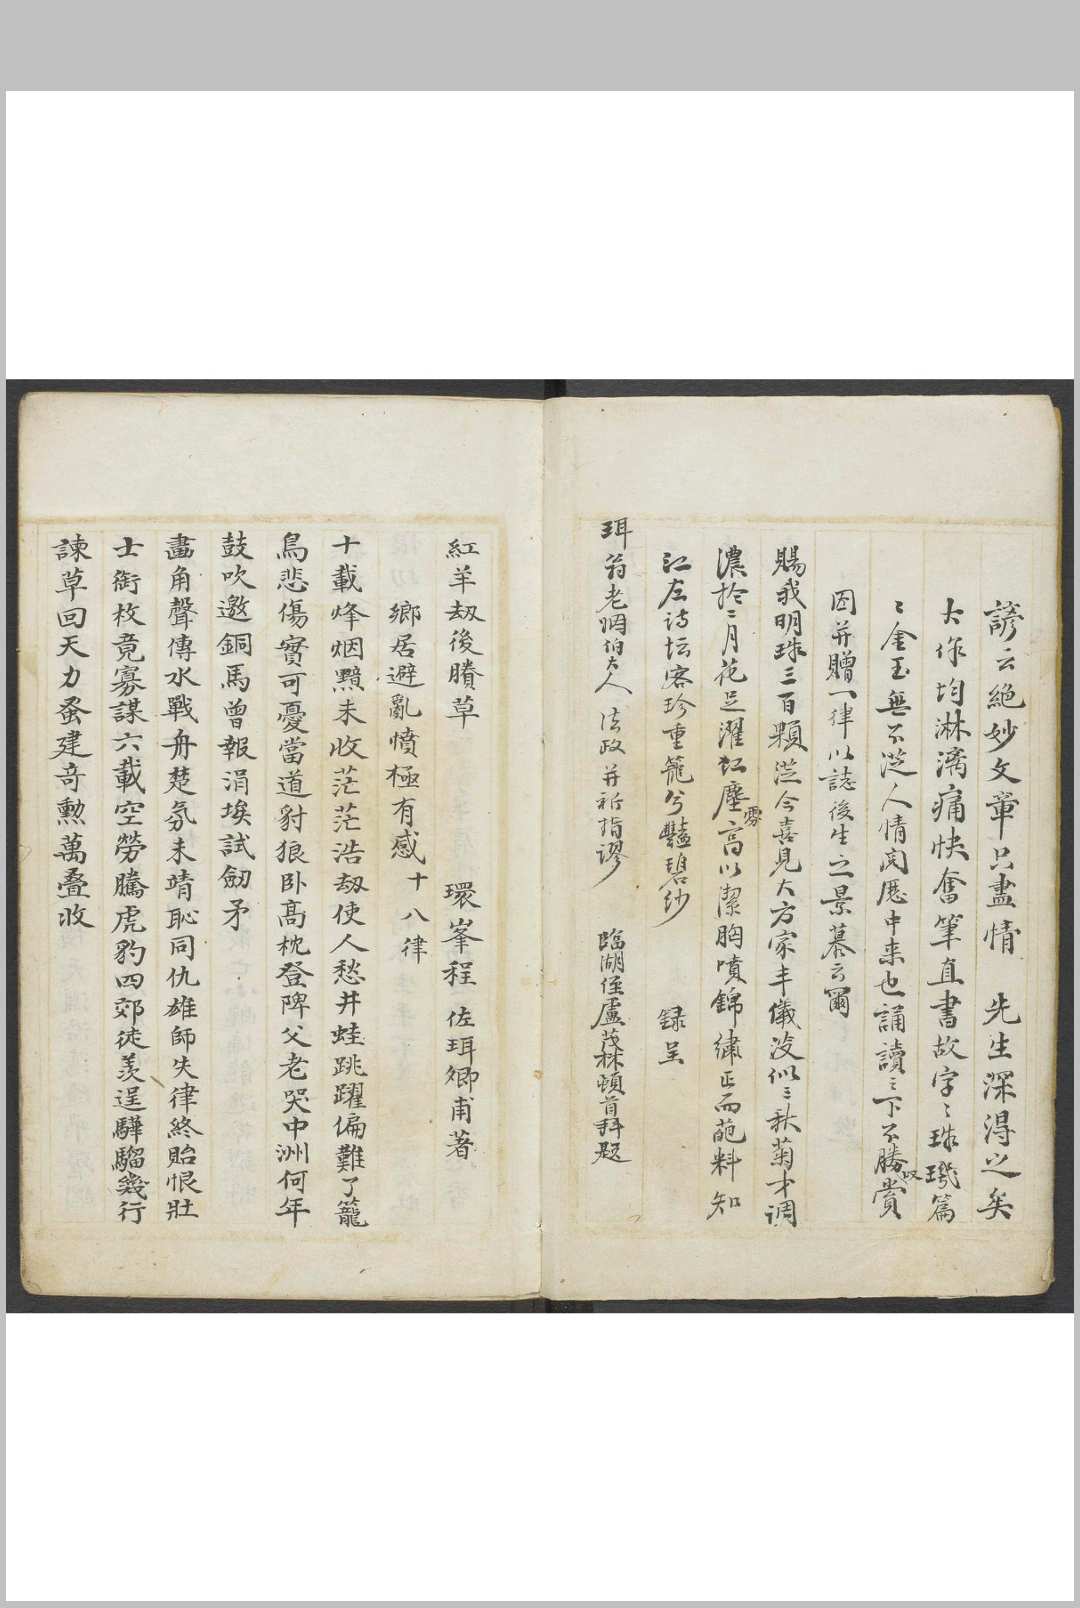 諺云絕妙文章只盡情　先生深得之矣
大作均淋漓痛快奮筆直書故字〻珠璣篇
〻金玉無不從人情閱歷中来也誦讀之下不勝賞歎
因并贈一律以誌後生之景慕云爾
賜我明珠三百顆從今喜見大方家丰儀淡似三秋菊才調
濃於二月花足濯紅塵高以潔胸噴錦繡正而葩料知
江左詩坛客珍重籠兮豔碧紗　錄呈
珥翁老姻伯大人　法政并祈指謬　臨湖侄盧茂森頓首拜題
紅羊刼後賸草　環峯程佐珥卿甫著
鄉居避亂憤極有感十八律
十載烽烟黯未收茫茫浩刼使人愁井蛙跳躍偏難了籠
鳥悲傷實可憂當道豺狼卧高枕登陴父老哭中洲何年
鼓吹邀銅馬曾報涓埃試劒矛
畵角聲傳水戰舟楚氛未靖恥同仇雄師失律終貽恨壯
士銜枚竟寡謀六載空勞騰虎豹四郊徒羨逞驊騮幾行
諫草回天力蚤建奇勳萬叠收